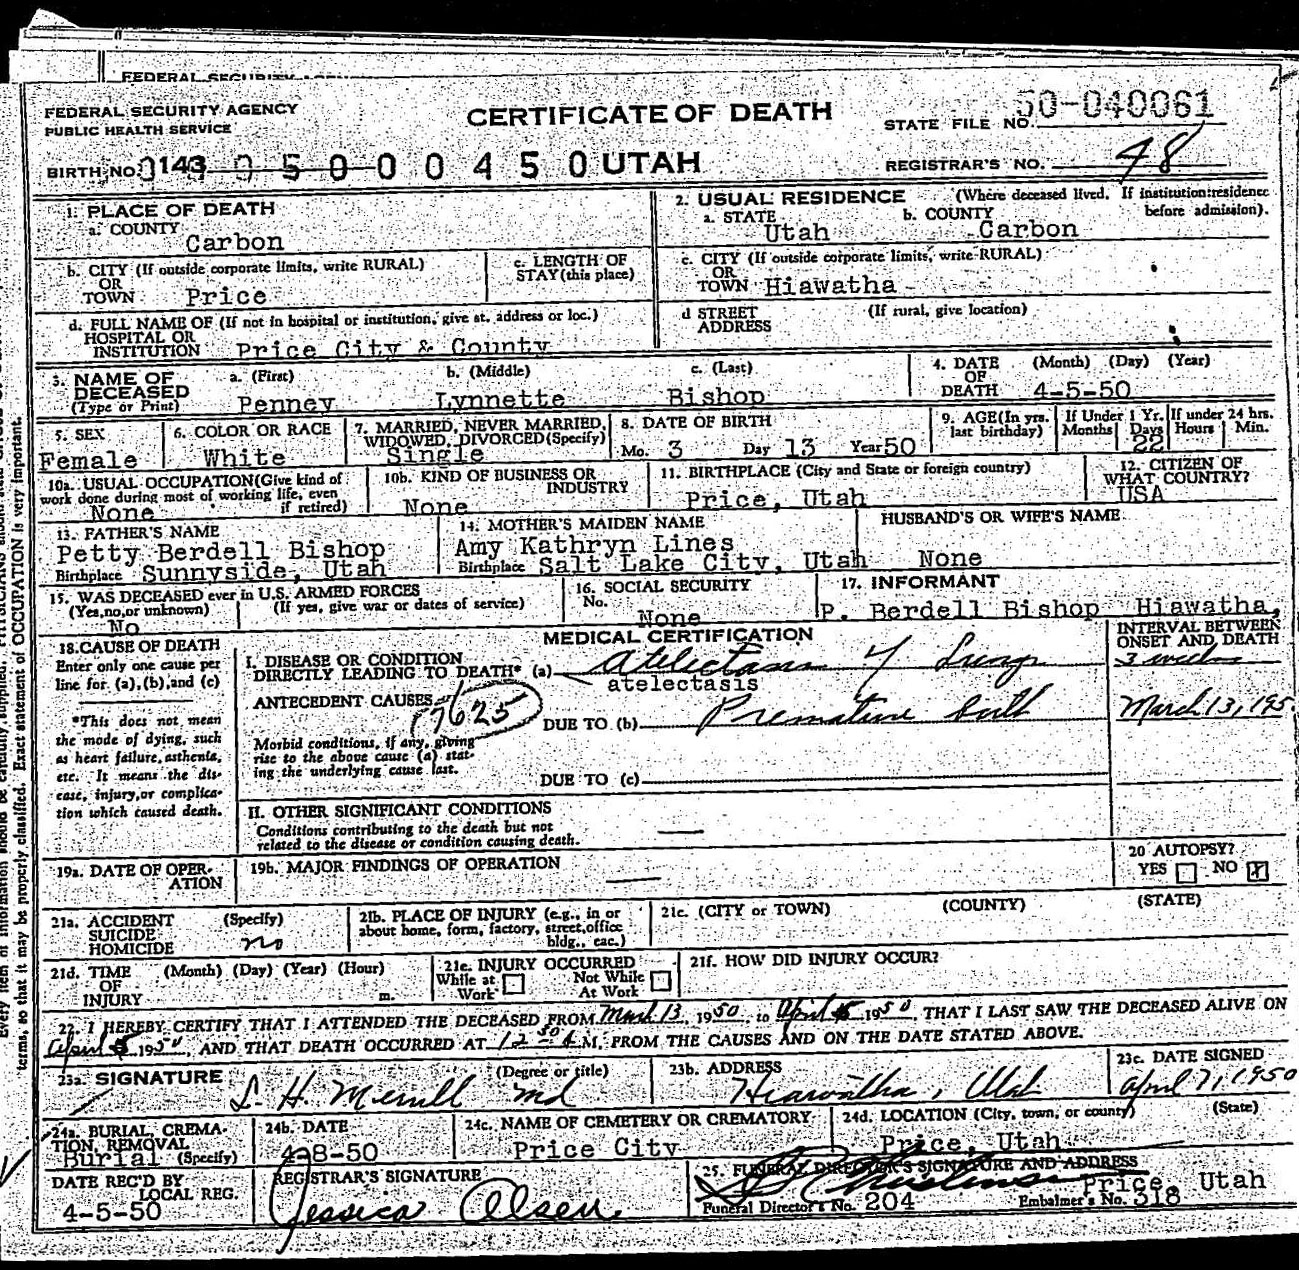 FEDERAL SECURITY AGENCY
PUBLIC HEALTH SERVICE
CERTIFICATE OF DEATH
STATE FILE NO. 50-040061
BIRTH NO. 143 0 5 0 0 0 4 5 0 UTAH
REGISTRAR'S NO. 48
1. PLACE OF DEATH
a. COUNTY
Carbon
2. USUAL RESIDENCE (Where deceased lived. If institution: residence before admission).
a. STATE b. COUNTY
Utah Carbon
b. CITY (If outside corporate limits, write RURAL)
OR
TOWN Price
c. LENGTH OF
STAY (this place)
c. CITY (If outside corporate limits, write RURAL)
OR
TOWN Hiawatha
d. FULL NAME OF (If not in hospital or institution, give st. address or loc.)
HOSPITAL OR
INSTITUTION Price City & County
d STREET (If rural, give location)
ADDRESS
3. NAME OF
DECEASED
(Type or Print)
a. (First) b. (Middle) c. (Last)
Penney Lynnette Bishop
4. DATE (Month) (Day) (Year)
OF
DEATH 4-5-50
5. SEX
Female
6. COLOR OR RACE
White
7. MARRIED, NEVER MARRIED,
WIDOWED, DIVORCED (Specify)
Single
8. DATE OF BIRTH
Mo. 3 Day 13 Year 50
9. AGE (In yrs.
last birthday)
If Under 1 Yr.
Months Days
22
If under 24 hrs.
Hours Min.
10a. USUAL OCCUPATION (Give kind of
work done during most of working life, even
if retired)
None
10b. KIND OF BUSINESS OR
INDUSTRY
None
11. BIRTHPLACE (City and State or foreign country)
Price, Utah
12. CITIZEN OF
WHAT COUNTRY?
USA
13. FATHER'S NAME
Petty Berdell Bishop
Birthplace Sunnyside, Utah
14. MOTHER'S MAIDEN NAME
Amy Kathryn Lines
Birthplace Salt Lake City, Utah
HUSBAND'S OR WIFE'S NAME
None
15. WAS DECEASED ever in U.S. ARMED FORCES
(Yes, no, or unknown) (If yes, give war or dates of service)
No
16. SOCIAL SECURITY
No.
None
17. INFORMANT
P. Berdell Bishop Hiawatha,
18. CAUSE OF DEATH
Enter only one cause per
line for (a), (b), and (c)
*This does not mean
the mode of dying, such
as heart failure, asthenia,
etc. It means the dis-
ease, injury, or complica-
tion which caused death.
MEDICAL CERTIFICATION
INTERVAL BETWEEN
ONSET AND DEATH
I. DISEASE OR CONDITION
DIRECTLY LEADING TO DEATH* (a) Atelectasis of Lungs
3 weeks
atelectasis
ANTECEDENT CAUSES
7625
DUE TO (b) Premature birth
March 13, 195
Morbid conditions, if any, giving
rise to the above cause (a) stat-
ing the underlying cause last.
DUE TO (c)
II. OTHER SIGNIFICANT CONDITIONS
Conditions contributing to the death but not
related to the disease or condition causing death.
19a. DATE OF OPER-
ATION
19b. MAJOR FINDINGS OF OPERATION
20 AUTOPSY?
YES NO X
21a. ACCIDENT (Specify)
SUICIDE
HOMICIDE no
21b. PLACE OF INJURY (e.g., in or
about home, form, factory, street, office
bldg., eac.)
21c. (CITY or TOWN) (COUNTY) (STATE)
21d. TIME (Month) (Day) (Year) (Hour)
OF
INJURY m.
21e. INJURY OCCURRED
While at Work Not While At Work
21f. HOW DID INJURY OCCUR?
22. I HEREBY CERTIFY THAT I ATTENDED THE DECEASED FROM March 13, 1950, to April 5 1950, THAT I LAST SAW THE DECEASED ALIVE ON
April 5 1950, AND THAT DEATH OCCURRED AT 12 50 A M, FROM THE CAUSES AND ON THE DATE STATED ABOVE.
23a. SIGNATURE (Degree or title)
L. H. Merrill md
23b. ADDRESS
Hiawatha, Utah
23c. DATE SIGNED
April 7, 1950
24a. BURIAL, CREMA-
TION, REMOVAL
Burial (Specify)
24b. DATE
4-8-50
24c. NAME OF CEMETERY OR CREMATORY
Price City
24d. LOCATION (City, town, or county) (State)
Price, Utah
DATE REC'D BY
LOCAL REG.
4-5-50
REGISTRAR'S SIGNATURE
Jessica Olsen
25. FUNERAL DIRECTOR'S SIGNATURE AND ADDRESS
Price, Utah
Funeral Director's No. 204 Embalmer's No. 318
terms, so that it may be properly classified. Exact statement of OCCUPATION is very important.